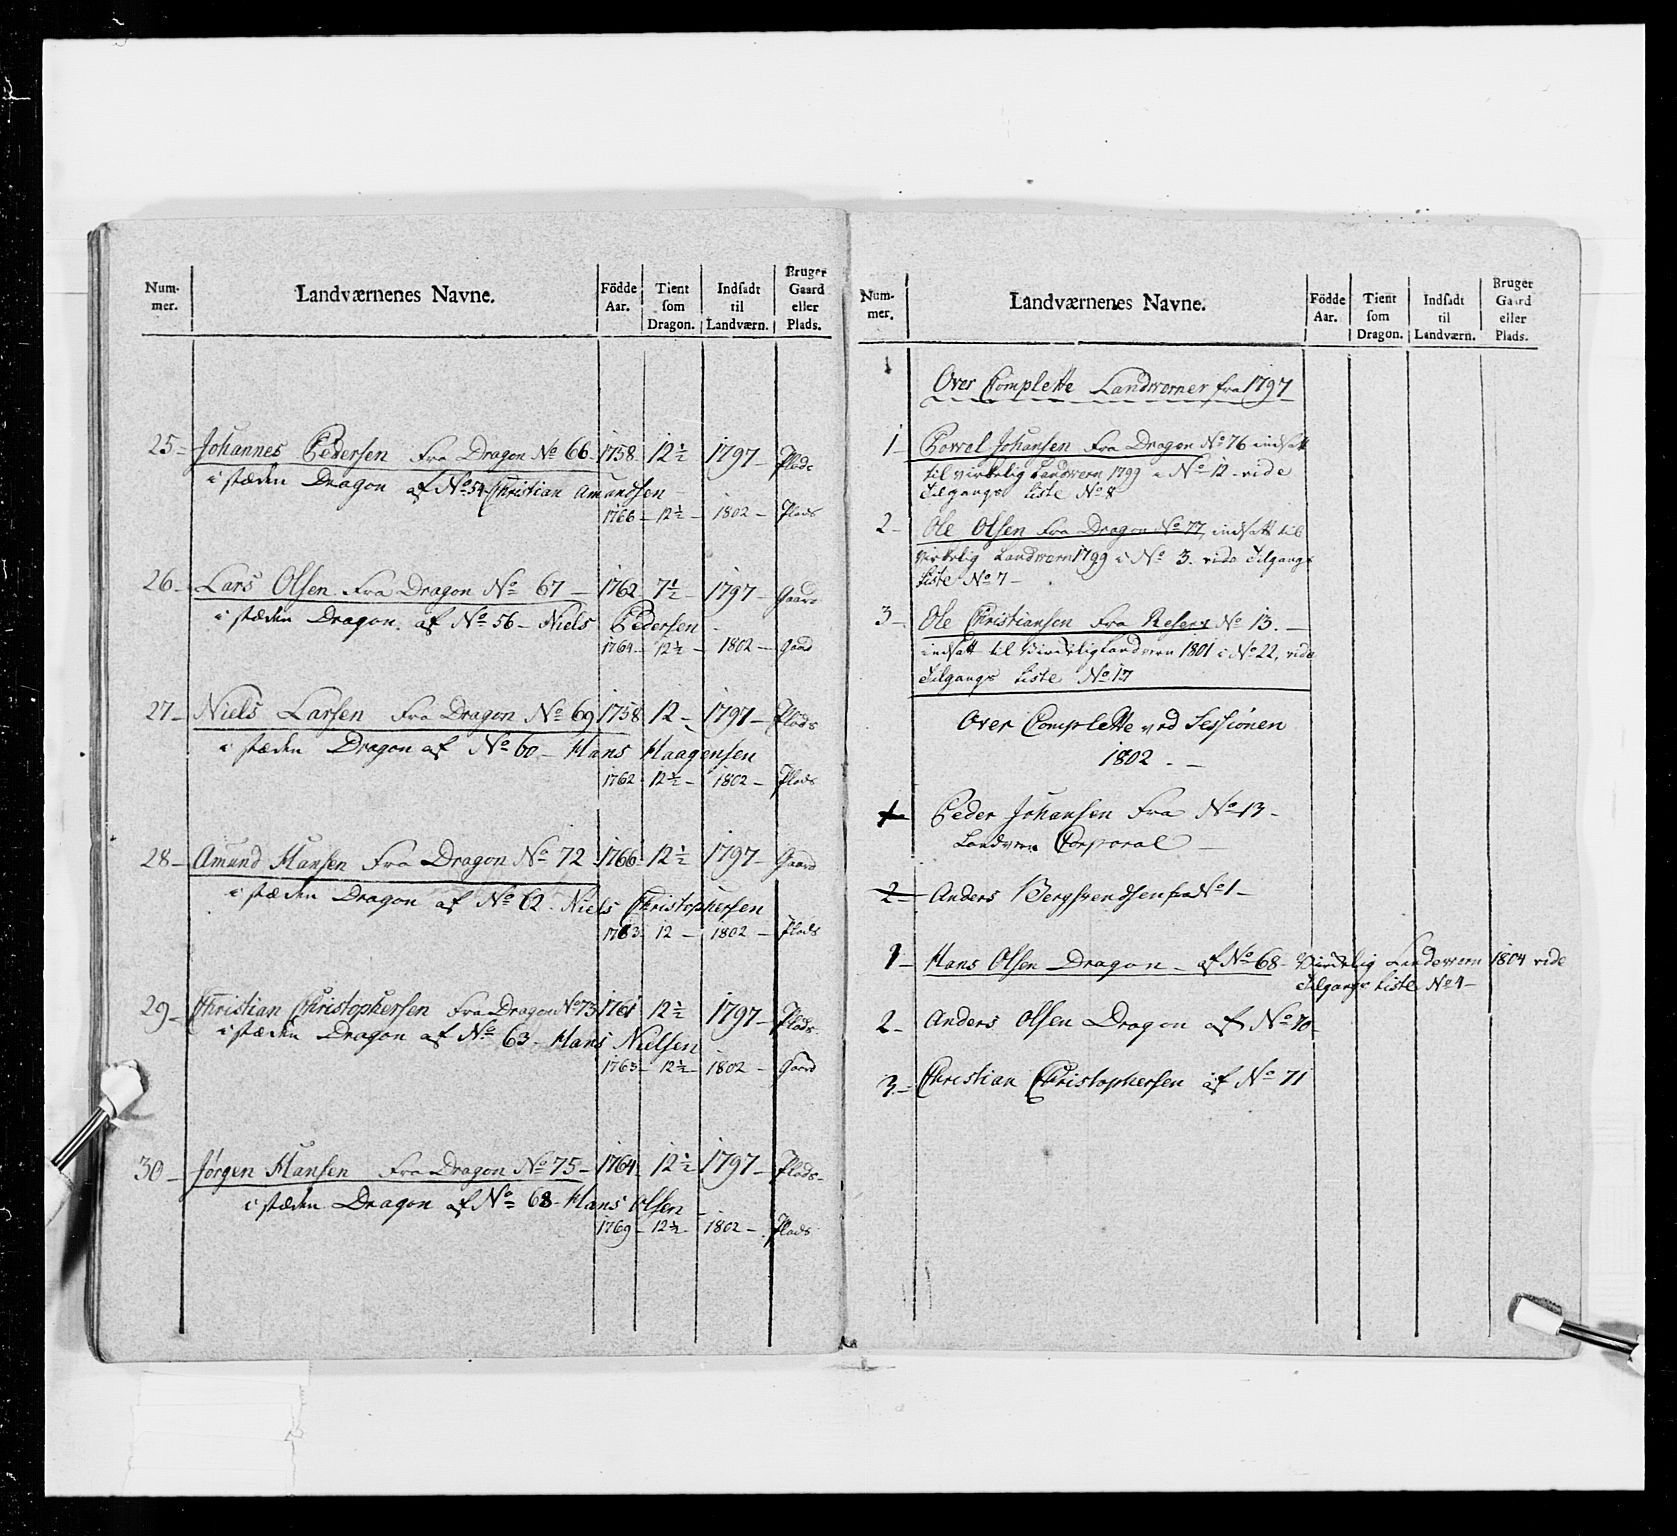 Num-
mer.
Landværnenes Navne.
Födde
Aar.
Tient
som
Dragon.
Indsadt
til
Landværn.
Bruger
Gaard
eller
Plads.
25- Johannes Pedersen Fra Dragon No 66 1758 12 1/2 1797- Plads
i stæden Dragon af No 54 Christian Amundsen
1766- 12 1/2- 1802- Plads
26- Lars Olsen Fra Dragon No 67- 1762 7 1/2- 1797- Gaard
i stæden Dragon af No 56- Niels Pedersen
1764- 12 1/2- 1802- Gaard
27- Niels Larsen Fra Dragon No 69 1758 12- 1797- Plads
i stæden Dragon af No 60- Hans Haagensen
1762 12 1/2- 1802- Plads
28- Amund Hansen Fra Dragon No 72 1766 12 1/2 1797- Gaard
i stæden Dragon af No 62. Niels Christophersen
1763- 12- 1802- Plads
29- Christian Christophersen Fra Dragon No 73 1761 12 1/2 1797- Plads-
i stæden Dragon af No 63- Hans Nielsen
1763- 12 1/2- 1802- Gaard
30- Jørgen Hansen Fra Dragon No 75- 1764- 12 1/2 1797- Plads-
i stæden Dragon af No 68- Hans Olsen-
1769- 12 1/2- 1802- Plads
Num-
mer.
Landværnenes Navne.
Födde
Aar.
Tient
som
Dragon.
Indsadt
til
Landværn.
Bruger
Gaard
eller
Plads.
Over Complette Landværner fra 1797
1- Povel Johansen Fra Dragon No 76 indsatt
til virkelig Landvern 1799 i No 12- vide
Tilgangs Liste No 8
2- Ole Olsen Fra Dragon No 77, indsatt til
virkelig Landvern 1799 i No 3. vide Tilgangs
Liste No 7-
3- Ole Christiansen Fra Reserv No 13.-
indsatt til Virkelig Landvern 1801 i No 22, vide
Tilgangs Liste No 17
Over Complette ved Sessionen
1802.-
1- Peder Johansen Fra No 13-
Landvern Corporal-
2- Anders Bergsvendsen fra No 1-
1- Hans Olsen Dragon- af No 68- Virkelig Landevern 1804 vide
Tilgangs Liste No 4-
2- Anders Olsen Dragon af No 70
3- Christian Christophersen af No 71